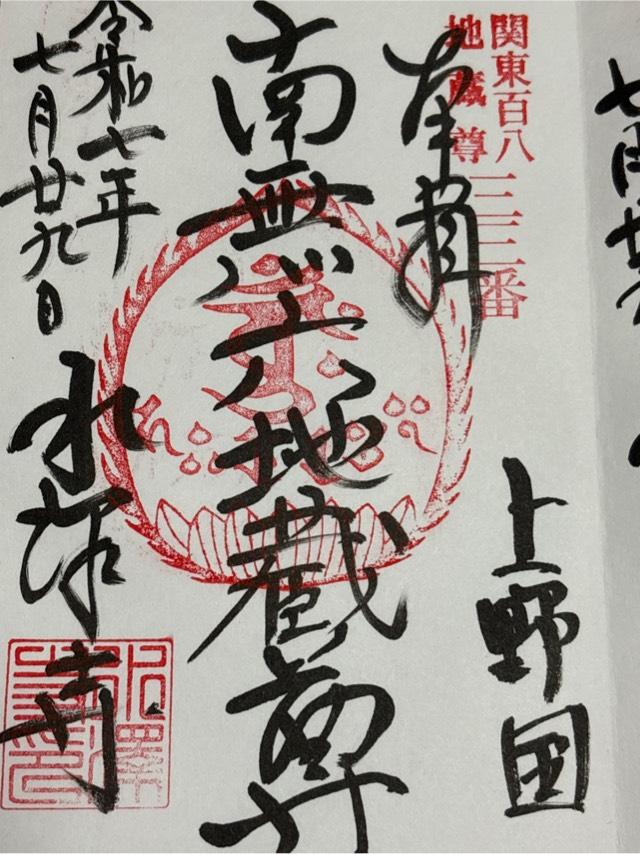 関東百八
地蔵尊
三三番
奉拝
上野国
南無六地蔵尊
令和七年
七月廿九日
水沢寺